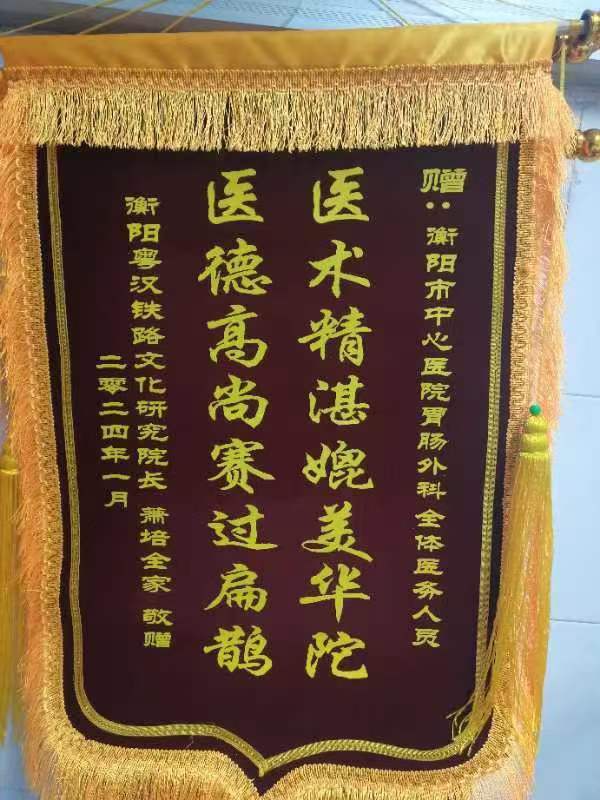 赠：衡阳市中心医院胃肠外科全体医务人员
医术精湛媲美华陀
医德高尚赛过扁鹊
衡阳粤汉铁路文化研究院长 萧培全家 敬赠
二零二四年一月